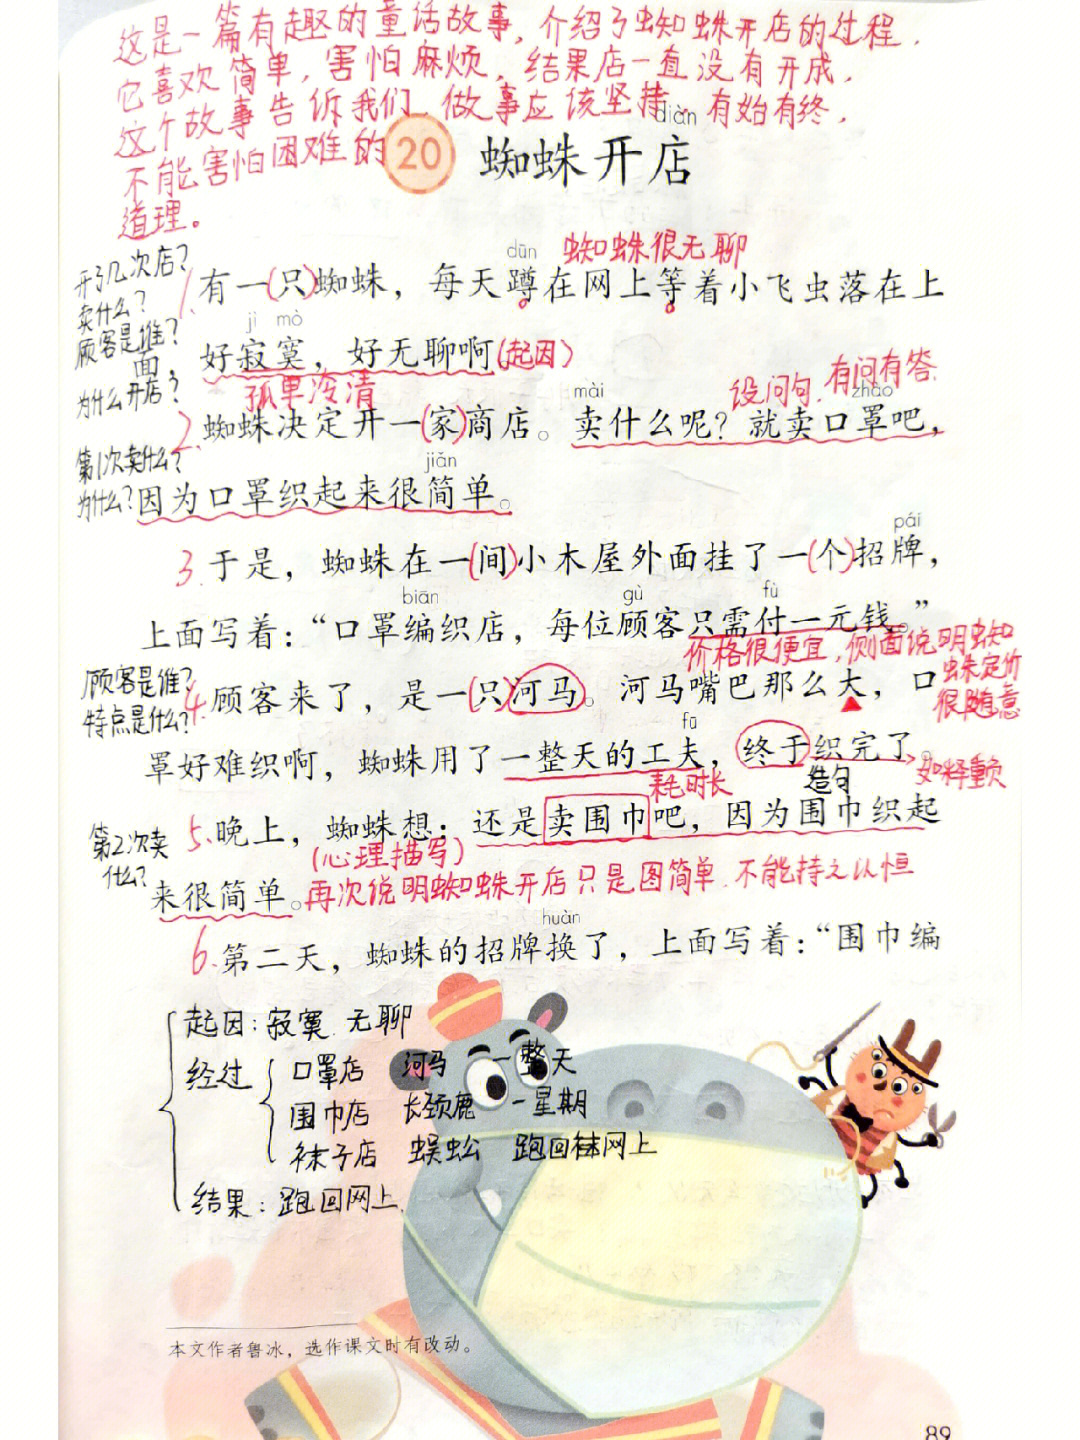 这是一篇有趣的童话故事，介绍了蜘蛛开店的过程．
它喜欢简单，害怕麻烦，结果店一直没有开成，
这个故事告诉我们，做事应该坚持，有始有终，
不能害怕困难的
道理。
diàn
20 蜘蛛开店
dūn 蜘蛛很无聊
开了几次店？
1.有一(只)蜘蛛，每天蹲在网上等着小飞虫落在上
卖什么？
顾客是谁？
jì mò
面，好寂寞，好无聊啊(起因)
为什么开店？
孤单冷清
mài 设问句．有问有答．
zhào
2.蜘蛛决定开一(家)商店。卖什么呢？就卖口罩吧，
第1次卖什么？
jiǎn
为什么？因为口罩织起来很简单。
pái
3.于是，蜘蛛在一(间)小木屋外面挂了一(个)招牌，
biān gù fù
上面写着：“口罩编织店，每位顾客只需付一元钱。”
价格很便宜，侧面说明蜘
蛛定价
很随意
顾客是谁？
特点是什么？
4.顾客来了，是一(只)河马。河马嘴巴那么大，口
fū
罩好难织啊，蜘蛛用了一整天的工夫，终于织完了。
耗时长 造句 如释重负
第2次卖
什么？
5.晚上，蜘蛛想：还是卖围巾吧，因为围巾织起
(心理描写)
来很简单。再次说明蜘蛛开店只是图简单．不能持之以恒
huàn
6.第二天，蜘蛛的招牌换了，上面写着：“围巾编
起因：寂寞．无聊
经过 口罩店 河马 一整天
围巾店 长颈鹿 一星期
袜子店 蜈蚣 跑回蛛网上
结果：跑回网上．
本文作者鲁冰，选作课文时有改动。
89